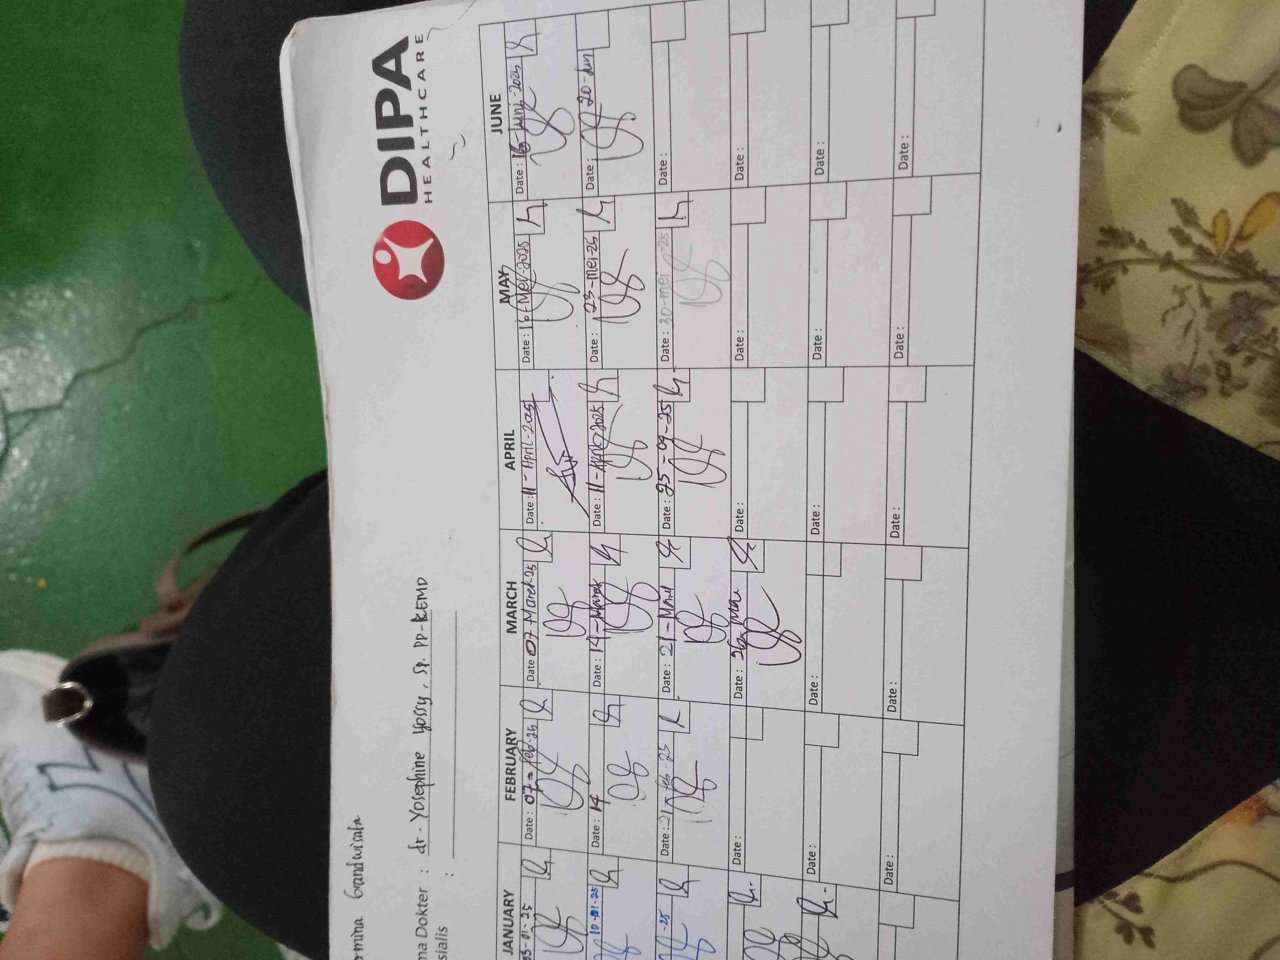 DIPA
HEALTHCARE
rmina Grandwisata
ma Dokter : dr. Yosephine Yossy, Sp. PD-KEMD
sialis :
JANUARY FEBRUARY MARCH APRIL MAY JUNE
03-01-25 Date: 07-Feb-25 Date: 07 Maret-25 Date: 11-April-2025 Date: 16-Mei-2025 Date: 16-Juni-2025
10-01-25 Date: 14 Date: 14-Maret Date: 11-April-2025 Date: 23-Mei-25 Date: 20-Jun
-25 Date: 21-Feb-25 Date: 21-Maret Date: 25-04-25 Date: 30-Mei-25 Date:
Date: Date: Date: Date: Date:
Date: Date: Date: Date: Date:
Date: Date: Date: Date: Date: